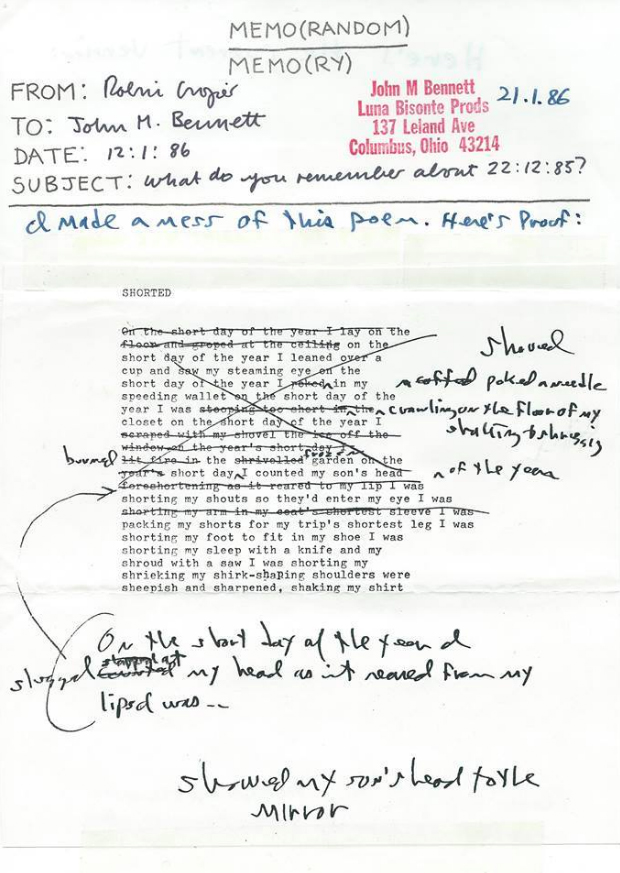 MEMO(RANDOM)
MEMO(RY)
FROM: Robin Crozier
TO: John M. Bennett
DATE: 12:1:86
SUBJECT: what do you remember about 22:12:85?
John M Bennett
Luna Bisonte Prods
137 Leland Ave
Columbus, Ohio 43214
21.1.86
I made a mess of this poem. Here's Proof:
SHORTED
On the short day of the year I lay on the
floor and groped at the ceiling on the
short day of the year I leaned over a
cup and saw my steaming eye on the
short day of the year I in my
speeding wallet on the short day of the
year I was stooping too short in the
closet on the short day of the year I
scraped with my shovel the ice off the
window on the year's short day I
lit fire in the shrivelled garden on the
year's short day I counted my son's head
foreshortening as it reared to my lip I was
shorting my shouts so they'd enter my eye I was
shorting my arm in my coat's shortest sleeve I was
packing my shorts for my trip's shortest leg I was
shorting my foot to fit in my shoe I was
shorting my sleep with a knife and my
shroud with a saw I was shorting my
shrieking my shirk-shaping shoulders were
sheepish and sharpened, shaking my shirt
poked a needle
crawling on the floor of my
of the year
On the short day of the year I
my head as it reared from my
lip I was --
showed my son's head to the
mirror